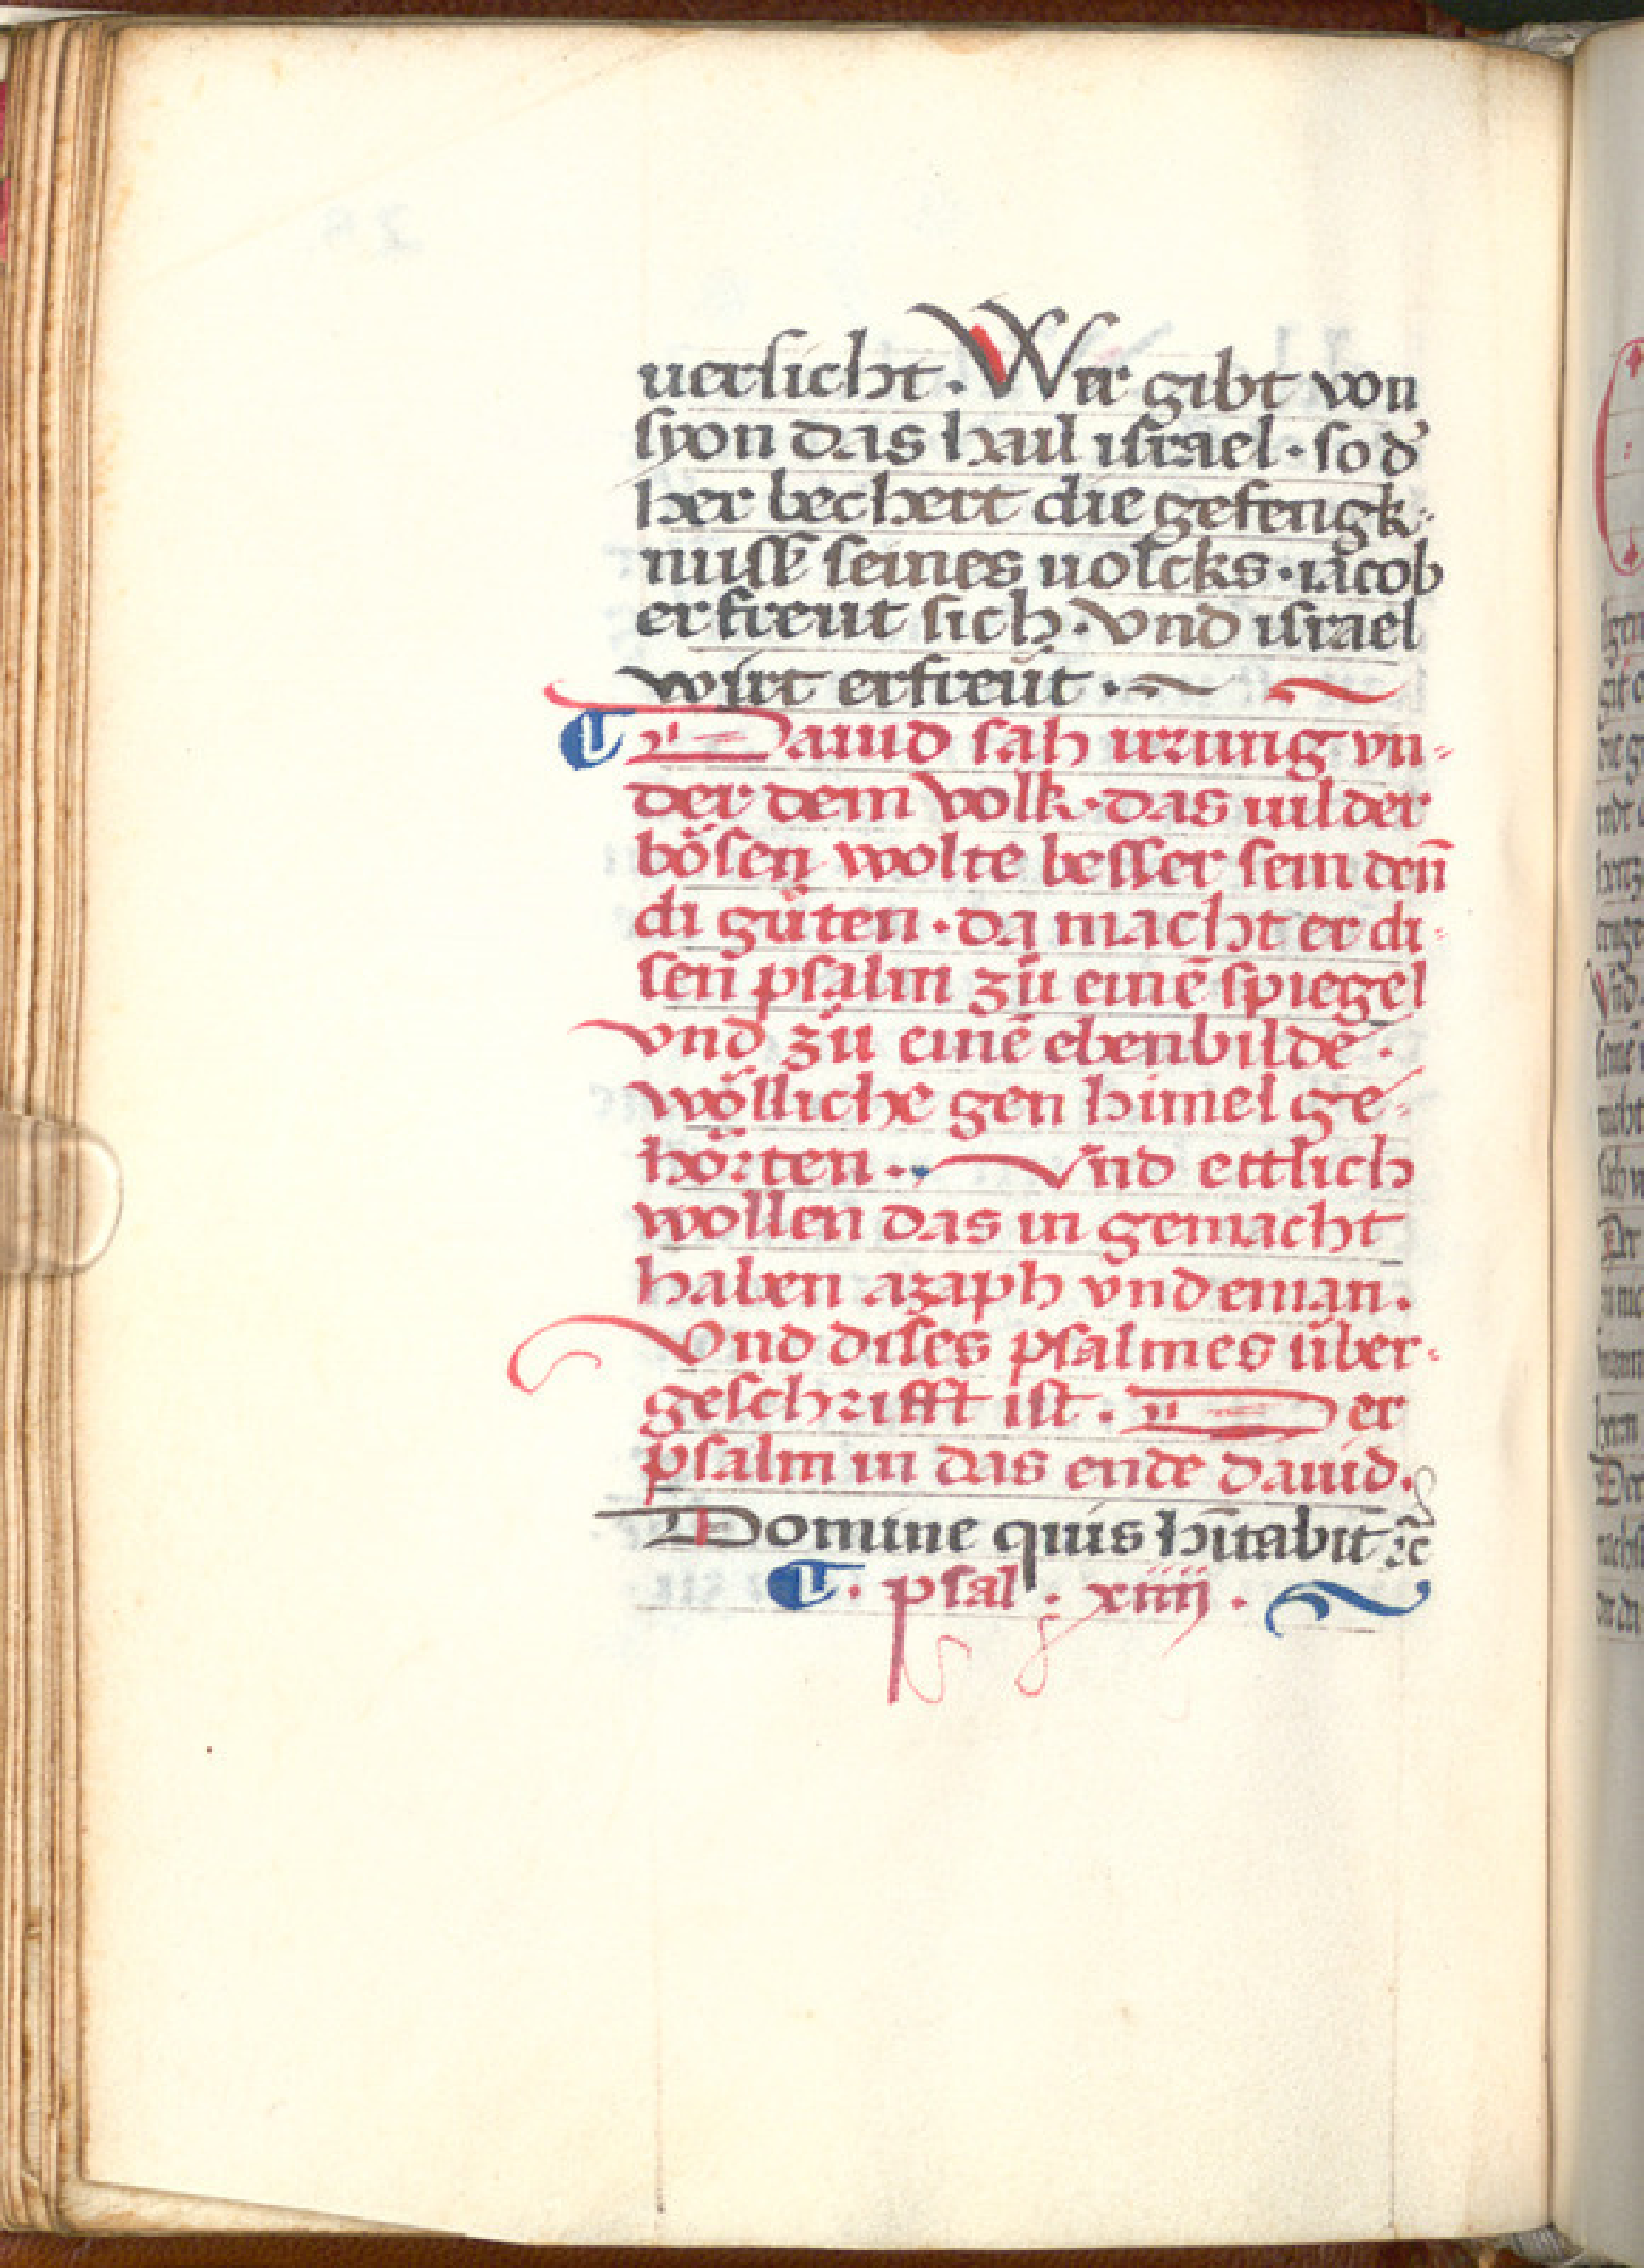 uersicht. Wer gibt von
syon das hail israel. so d'
her bechert die gefengk-
nuss seines uolcks. iacob
erfreut sich. vnd israel
wirt erfreüt.
Dauid sah irrung vn-
der dem volk. das uil der
bösen wolte besser sein deñ
di güten. da macht er di-
sen psalm zü einē spiegel
vnd zü einē ebenbilde.
wölliche gen himel ge-
hörten. Vnd ettlich
wollen das in gemacht
haben azaph vnd eman.
Vnd dises psalmes über-
geschrifft ist. Der
psalm in das ende dauid.
Domine quis hītabit ⁊c̄
psal. xiiij.